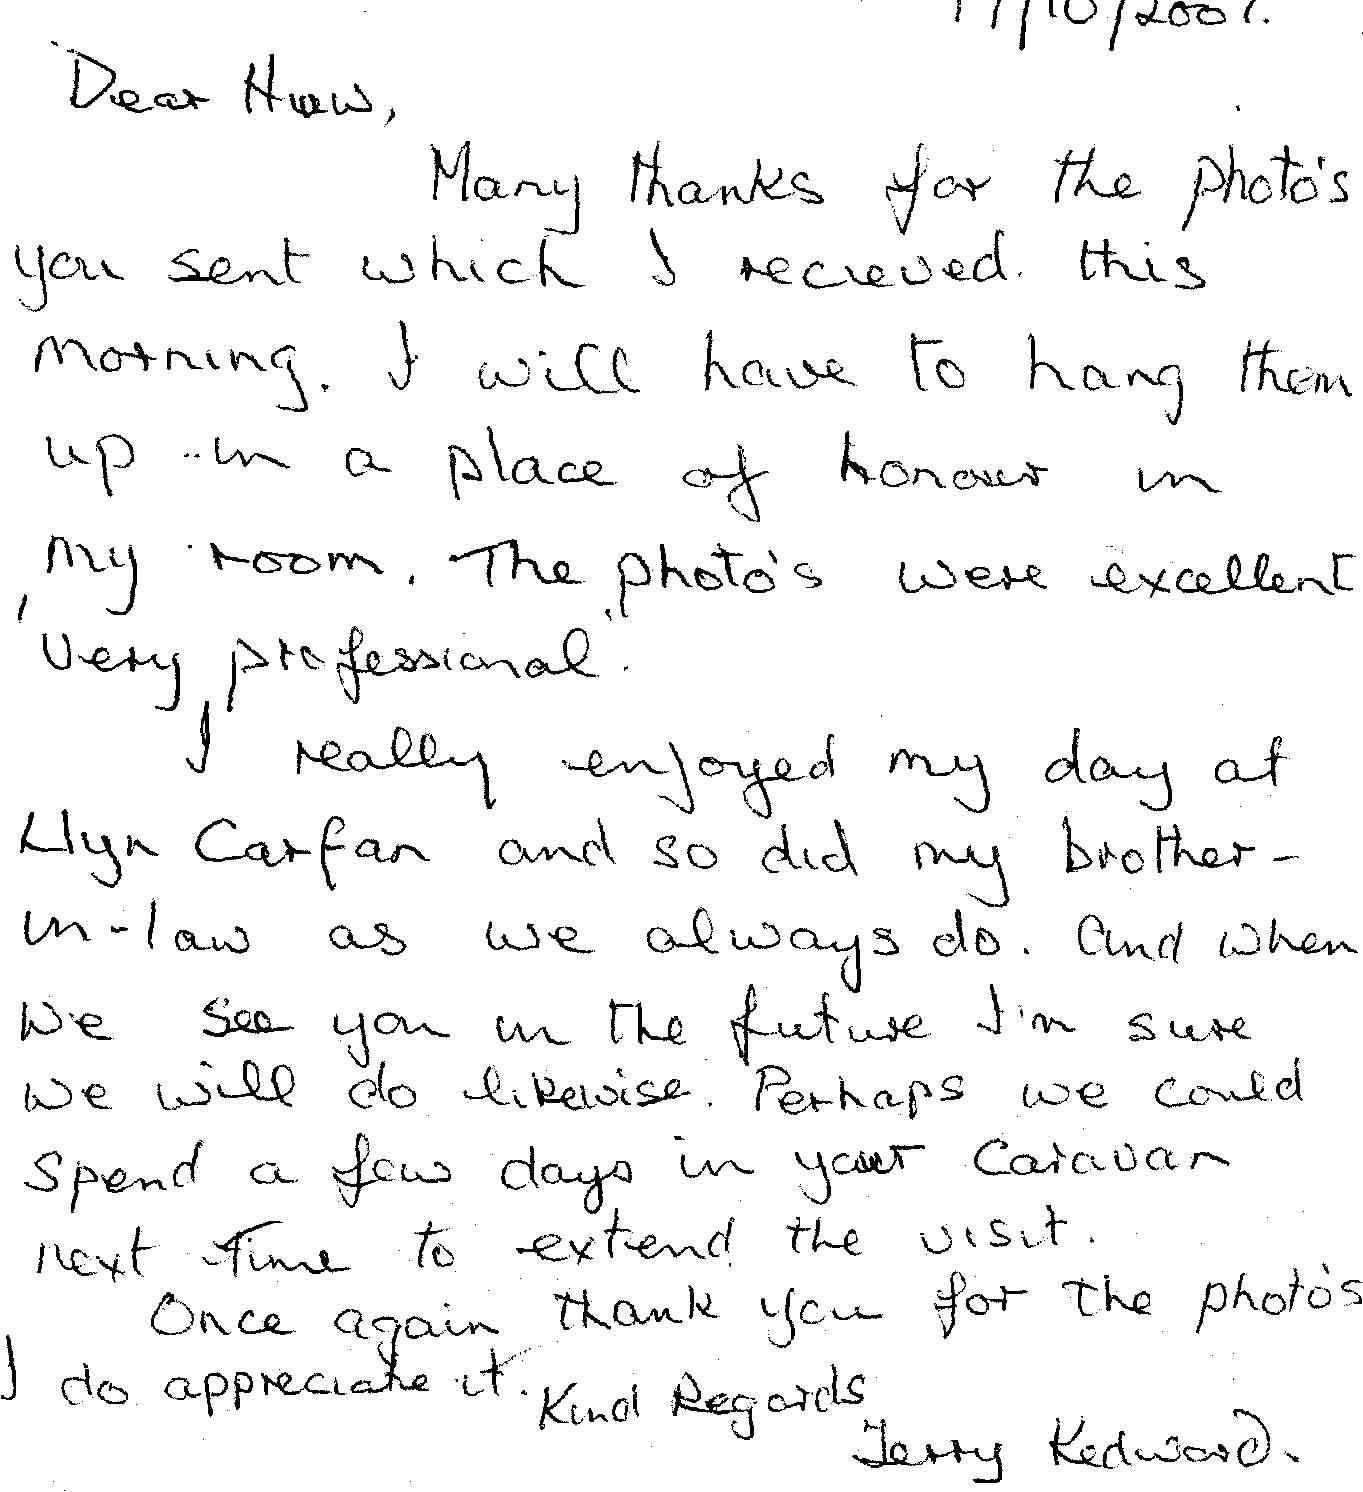 /10/2007.
Dear Huw,
Many thanks for the photo's
you sent which I recieved this
morning. I will have to hang them
up in a place of honour in
my room. The photo's were excellent
'very professional'.
I really enjoyed my day at
Llyn Carfan and so did my brother-
in-law as we always do. And when
we see you in the future I'm sure
we will do likewise. Perhaps we could
spend a few days in your caravan
next time to extend the visit.
Once again thank you for the photo's
I do appreciate it.
Kind Regards
Terry Kedward.